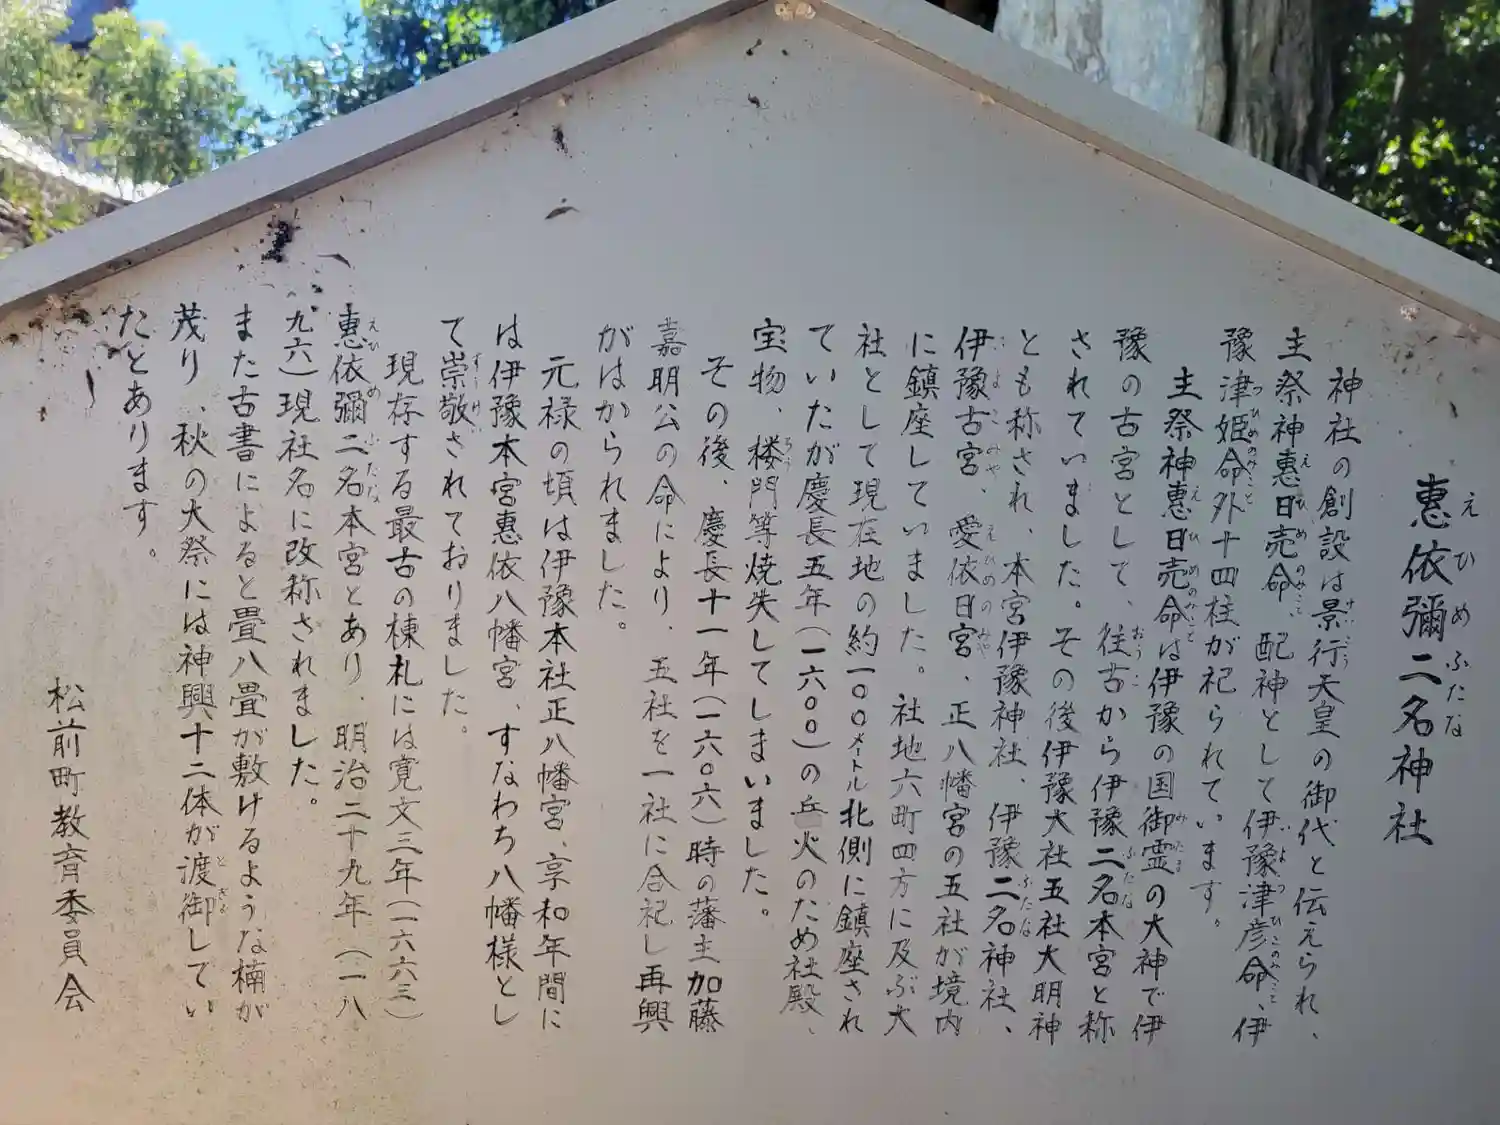 惠依彌二名神社
えひめふたな
神社の創設は景行天皇の御代と伝えられ、
けいこう
主祭神惠日売命、配神として伊豫津彦命、伊
えひめのみこと いよつひこのみこと
豫津姫命外十四柱が祀られています。
つひめのみこと
主祭神惠日売命は伊豫の国御霊の大神で伊
えひめのみこと みたま
豫の古宮として、往古から伊豫二名本宮と称
おうこ ふたな
されていました。その後伊豫大社五社大明神
とも称され、本宮伊豫神社、伊豫二名神社、
ふたな
伊豫古宮、愛依日宮、正八幡宮の五社が境内
いよこみや えひめのみや
に鎮座していました。社地六町四方に及ぶ大
社として現在地の約一〇〇メートル北側に鎮座され
ていたが慶長五年(一六〇〇)の兵火のため社殿、
宝物、楼門等焼失してしまいました。
ろう
その後、慶長十一年(一六〇六)時の藩主加藤
嘉明公の命により、五社を一社に合祀し再興
がはかられました。
元禄の頃は伊豫本社正八幡宮、享和年間に
は伊豫本宮惠依八幡宮、すなわち八幡様とし
て崇敬されておりました。
すうけい
現存する最古の棟札には寛文三年(一六六三)
惠依彌二名本宮とあり、明治二十九年(一八
えひめふたな
九六)現社名に改称されました。
また古書によると畳八畳が敷けるような楠が
茂り、秋の大祭には神興十二体が渡御してい
とぎょ
たとあります。
松前町教育委員会